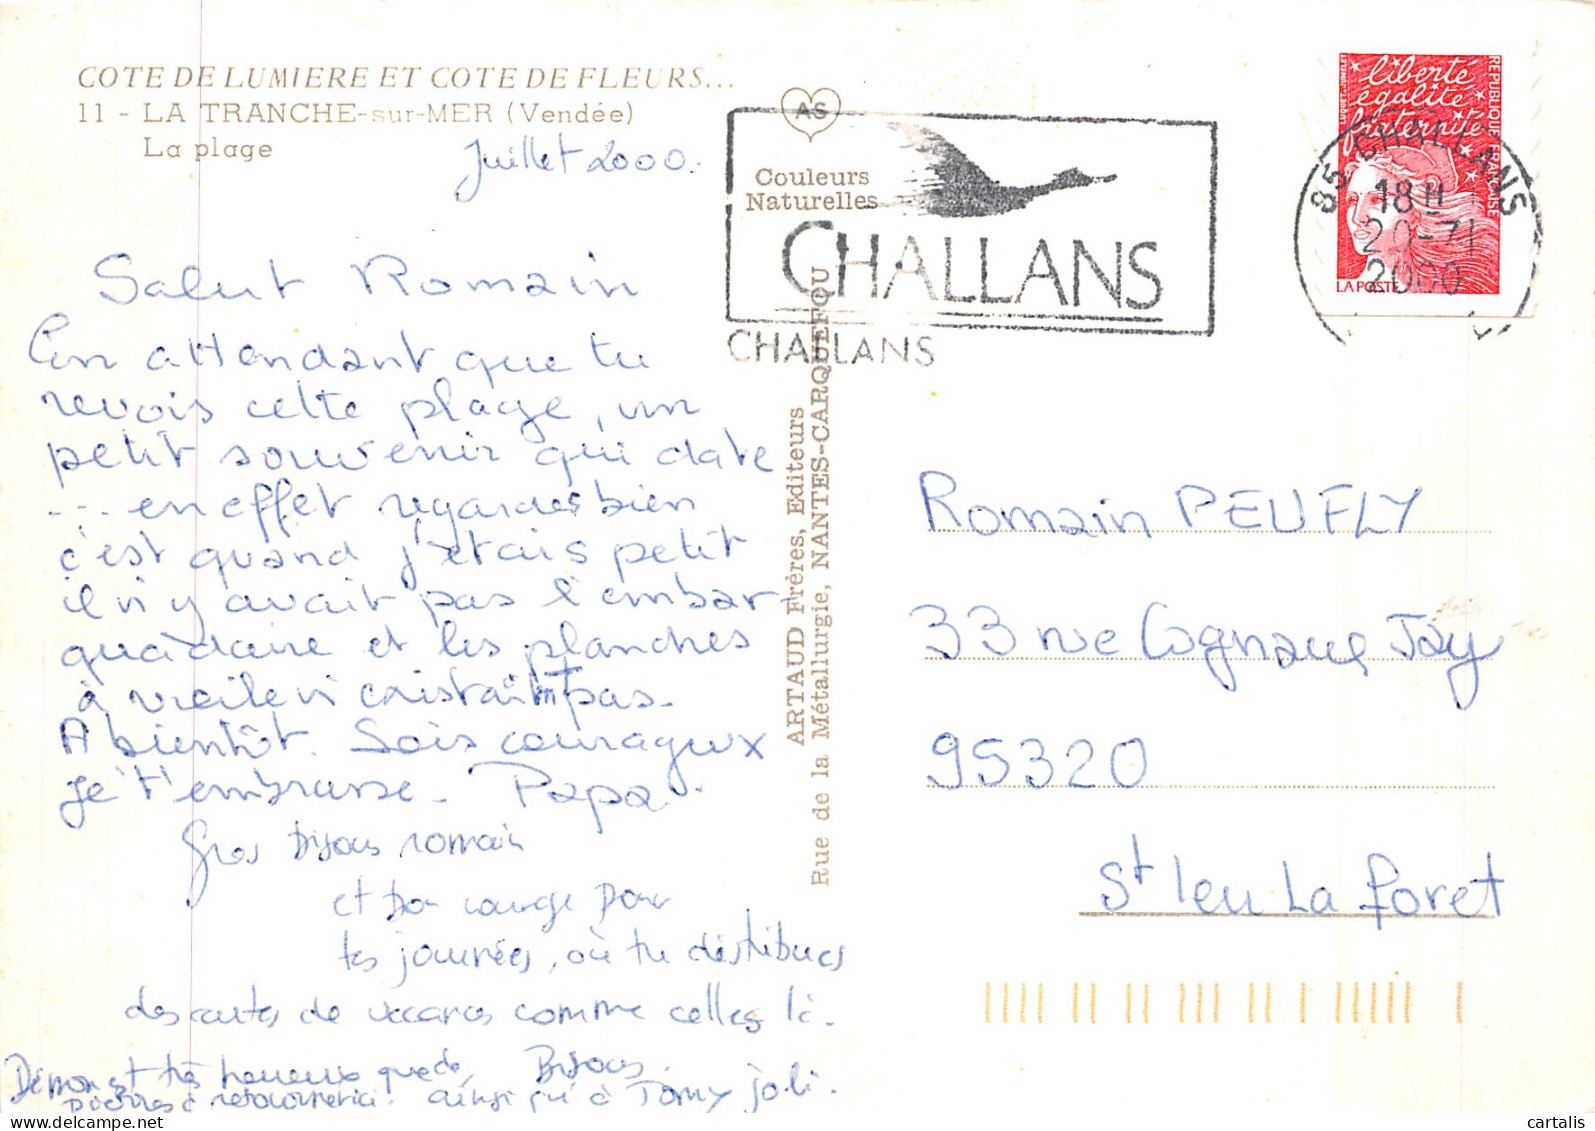 COTE DE LUMIERE ET COTE DE FLEURS...
11 - LA TRANCHE-sur-MER (Vendée)
La plage
Juillet 2000.
Salut Romain
En attendant que tu
revois cette plage, un
petit souvenir qui date
... en effet regardes bien
c'est quand j'étais petit
il n'y avait pas l'embar-
quadaire et les planches
à voile n'existaient pas.
A bientôt. Sois courageux
je t'embrasse. Papa.
Gros Bisous romain
et bon courage pour
tes journées, où tu distribues
des cartes de vacances comme celles là.
Bisous.
ainsi qu'à Tomy joli.
AS
Couleurs
Naturelles
CHALLANS
CHALLANS
ARTAUD Frères, Editeurs
Rue de la Métallurgie, NANTES-CARQUEFOU
liberté
égalité
fraternité
REPUBLIQUE FRANÇAISE
LA POSTE
85 CHALLANS
18H
20-7
2000
Romain PEUFLY
33 rue Cognacq Jay
95320
St leu La foret
www.delcampe.net
cartalis